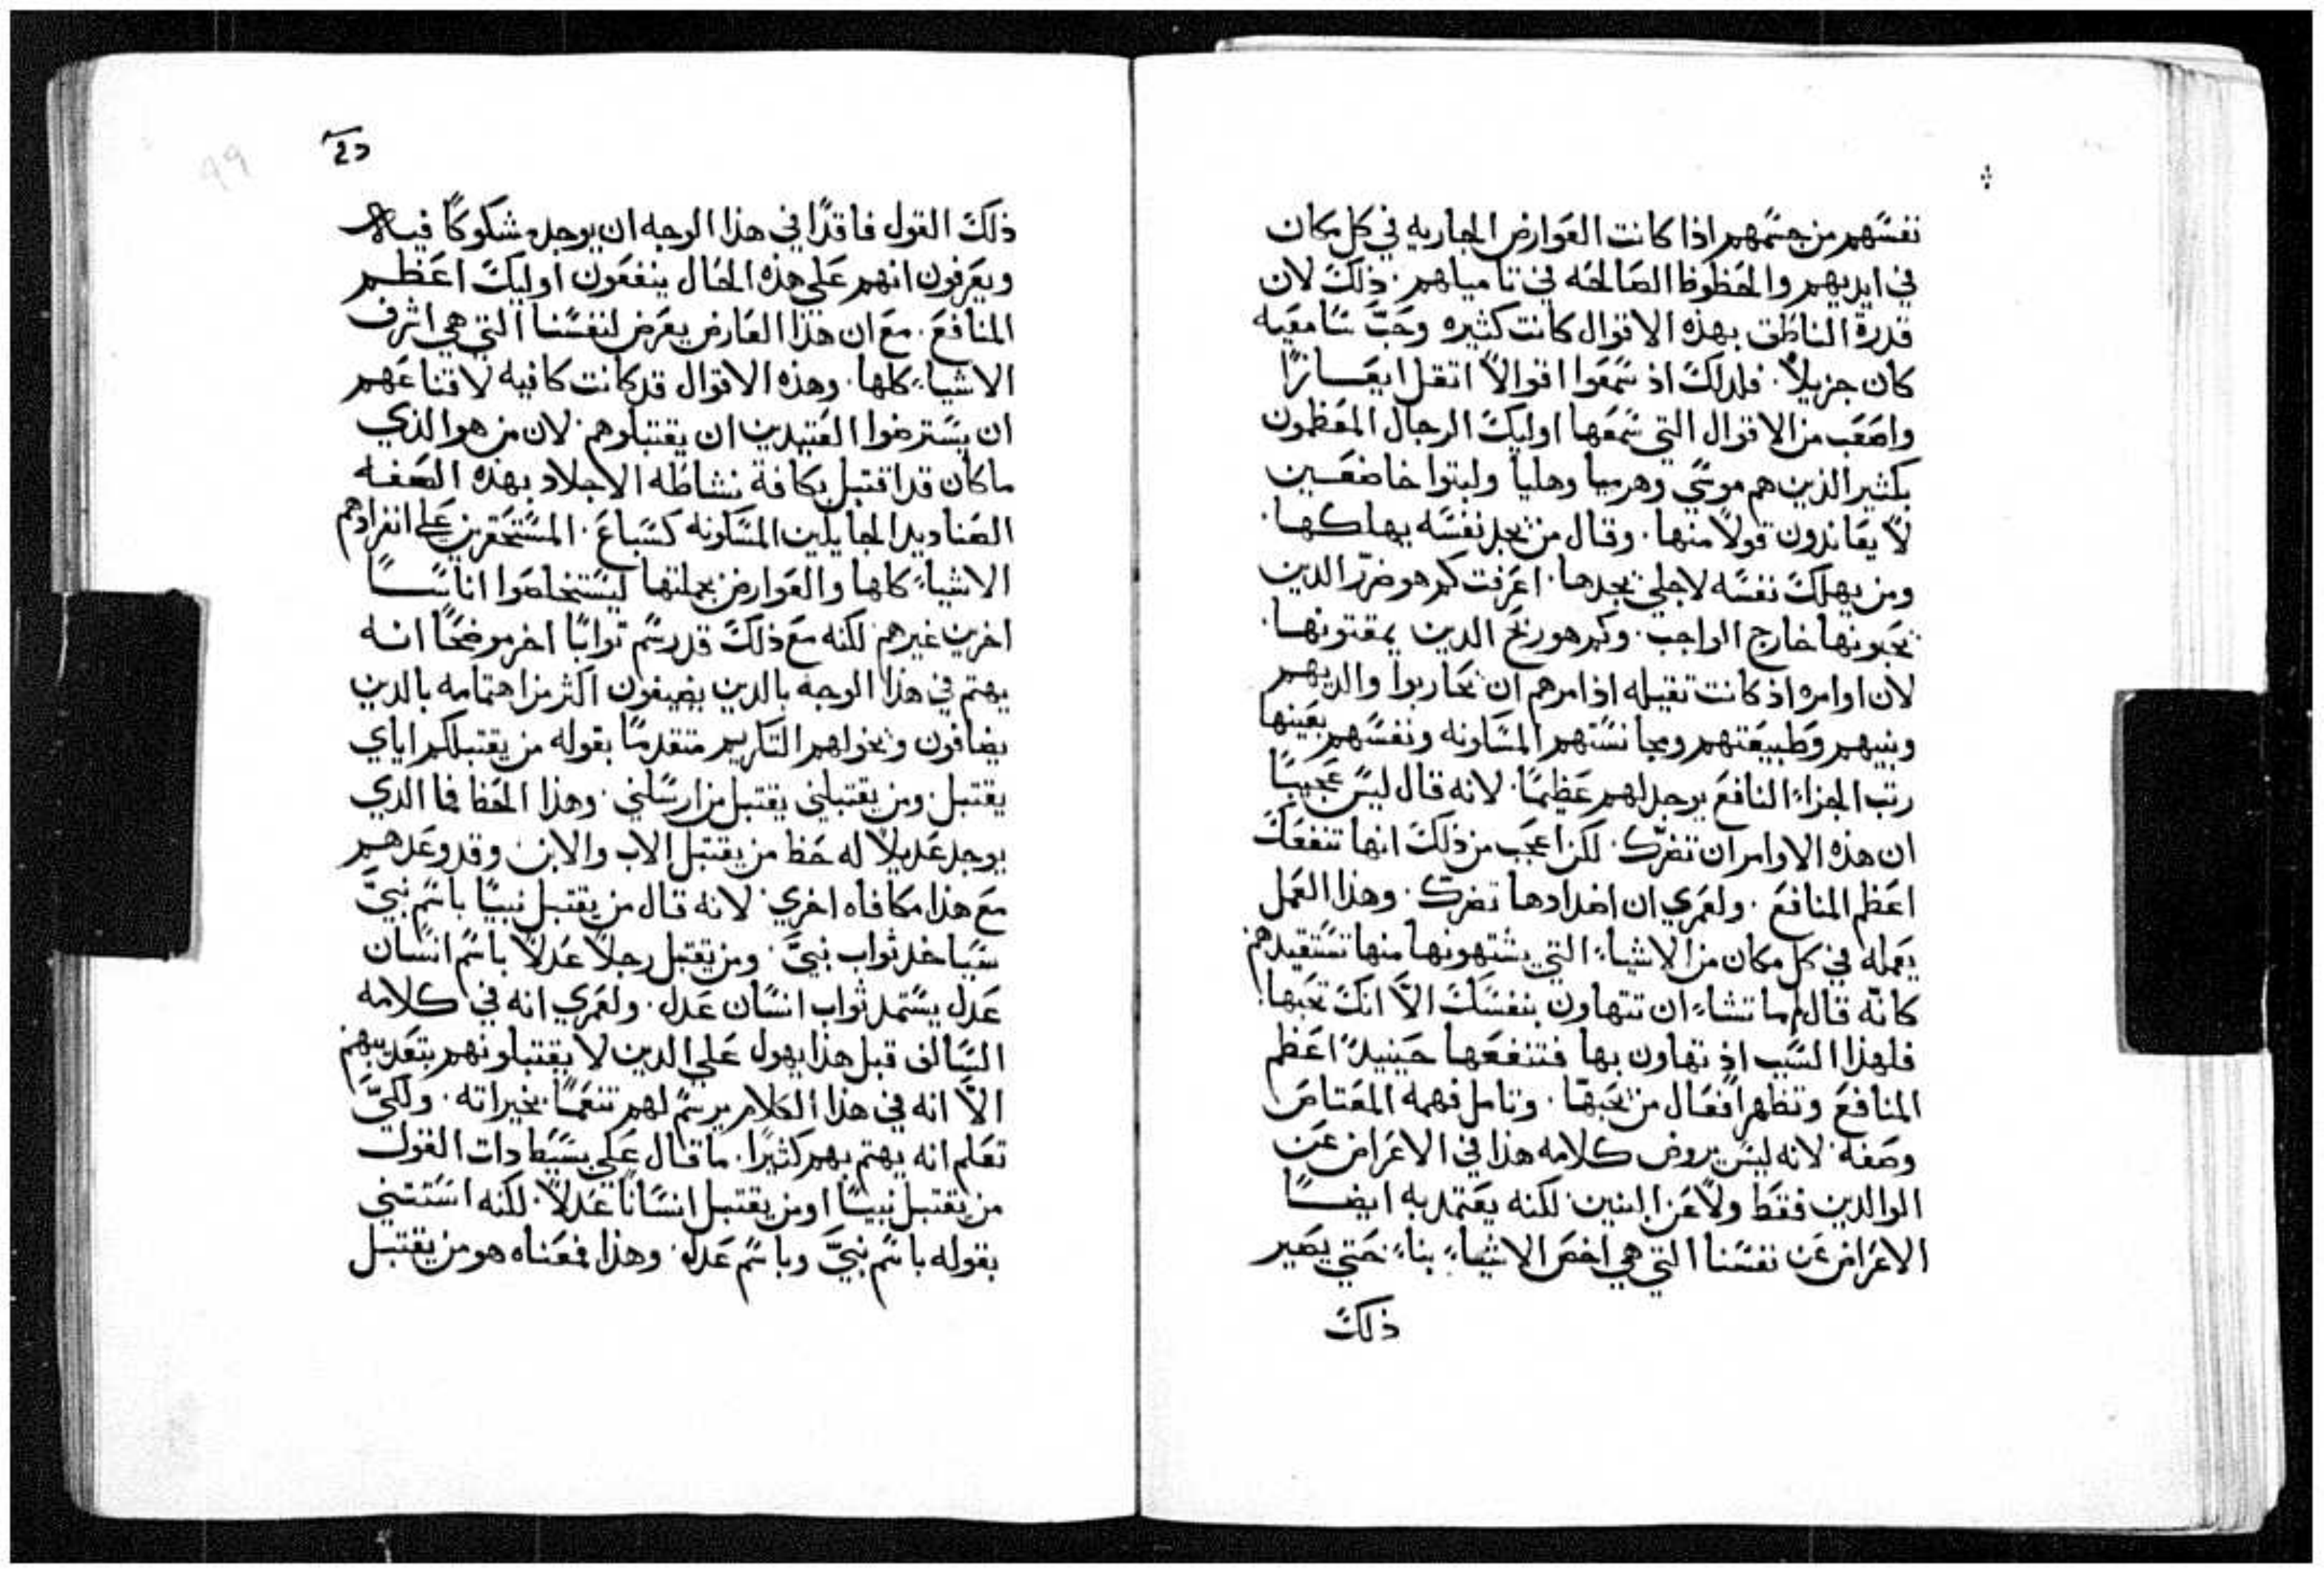 نفسهم من جسمهم اذا كانت العوارض الجاريه في كل مكان
في ايديهم والحظوظ الصالحه في تاميلهم. ذلك لان
قدرة الناطق بهذه الاقوال كانت كثيره وحب سامعيه
كان جزيلاً. فلدلك اذ سمعوا اقوالاً اتقل ايعازًا
واصعب من الاقوال التي سمعها اوليك الرجال المعظمون
بكثير الذين هم موسي وهرميا وهليا ولبتوا خاضعين
لا يعاندون قولاً منها. وقال من يجد نفسه يهلكها.
ومن يهلك نفسه لاجلي يجدها. اعرفت كم هو ضرّ الدين
يحبونها خارج الواجب. وكم هو ربح الدين يمقتونها.
لان اوامره اذ كانت تقيله اذ امرهم ان يحاربوا والديهم
وبنيهم وطبيعتهم ومجانستهم المسكونه ونفسهم بعينها
رتب الجزاء النافع يوجد لهم عظيمًا. لانه قال ليس عجيبًا
ان هذه الاوامر ان تضرّك. لكن اعجب من ذلك انها تنفعك
اعظم المنافع. ولعمري ان اضدادها تضرّك. وهذا العمل
يعمله في كل مكان من الاشياء التي يشتهونها منها تستقيدهم
كانّه قال لم ما تشاء ان تتهاون بنفسك الاّ انك تحبها.
فلهذا السبب اذ تهاون بها فتنفعها حينيدً اعظم
المنافع وتظهر افعال من يحبها. وتامل فهمه المعتاص
وصفه. لانه ليس يروض كلامه هذا في الاعراض عن
الوالدين فقط ولا عن البنين. لكنه يعتمد به ايضًا
الاعراض عن نفسنا التي هي اخص الاشياء بناء. حتي يصير
ذلك
ذلك القول فاقدًا في هذا الوجه ان يوجد شكوكًا فيه
ويعرفون انهم علي هذه الحال ينفعون اوليك اعظم
المنافع. مع ان هذا العارض يعرض لنفسنا التي هي اشرف
الاشياء كلها. وهذه الاقوال قد كانت كافيه لاقناعهم
ان يسترضوا العتيدين ان يقتبلوهم. لان من هو الذي
ما كان قد اقتبل بكافة نشاطه الاجلاد بهذه الصفه
الصناديد الجايلين المسكونه كسباع. المستحقرين علي انفرادهم
الاشياء كلها والعوارض بجملتها ليستخلصوا اناسًا
اخرين غيرهم. لكنه مع ذلك قد رسم توابًا اخر موضحًا انه
يهتم في هذا الوجه بالدين يضيفون اكثر من اهتمامه بالدين
يضافون ويخولهم التكريم متقدمًا بقوله من يقتبلكم اياي
يقتبل. ومن يقتبلني يقتبل من ارسلني. وهذا الحظ فما الدي
يوجد عديلاً له حظ من يقتبل الاب والابن وقد وعدهم
مع هذا مكافاه اخري. لانه قال من يقتبل نبيًا باسم نبيّ
سياخد ثواب نبيّ. ومن يقتبل رجلاً عدلاً باسم انسان
عدل يستمد ثواب انسان عدل. ولعمري انه في كلامه
السالف قبل هذا يهول علي الدين لا يقتبلونهم بتعديبهم
الاّ انه في هذا الكلام يرسم لهم تنعمًا بخيراته. ولكيّ
تعلم انه يهتم بهم كثيرًا. ما قال علي بسيط دات القول
من يقتبل نبيًا او من يقتبل انسانًا عدلاً. لكنه استثني
بقوله باسم نبيّ وباسم عدل. وهذا فمعناه هو من يقتبل